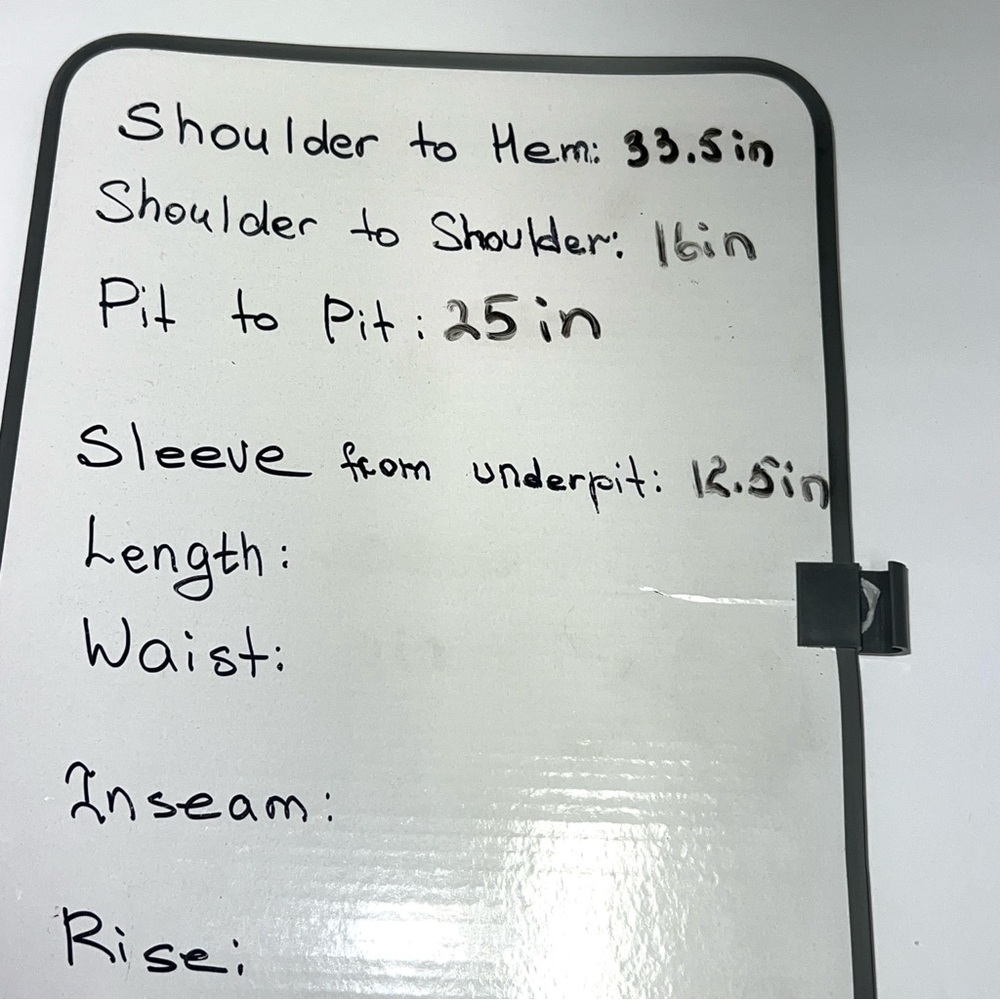 Shoulder to Hem: 33.5in
Shoulder to Shoulder: 16in
Pit to Pit: 25in
Sleeve from underpit: 12.5in
Length:
Waist:
Inseam:
Rise: